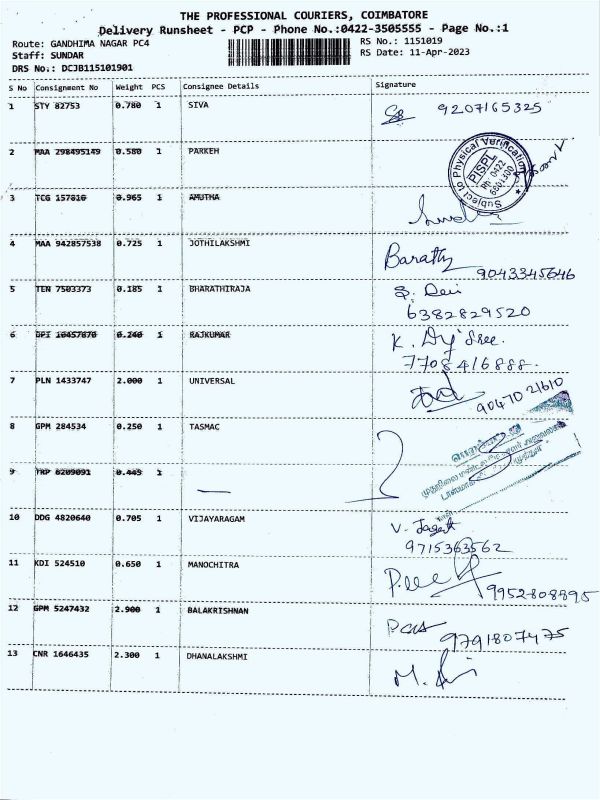 THE PROFESSIONAL COURIERS, COIMBATORE
Delivery Runsheet - PCP - Phone No.:0422-3505555 - Page No.:1
Route: GANDHIMA NAGAR PC4
RS No.: 1151019
Staff: SUNDAR
RS Date: 11-Apr-2023
DRS No.: DCJB115101901
S No Consignment No Weight PCS Consignee Details Signature
1 STY 82753 0.780 1 SIVA 9207165325
2 MAA 298495149 0.580 1 PARKEH
Subject to Physical Verification
PISPL
Ph 0422
6601300
3 TCG 157816 0.965 1 AMUTHA
4 MAA 942857538 0.725 1 JOTHILAKSHMI Barathy
9043345646
5 TEN 7503373 0.185 1 BHARATHIRAJA S. Devi
6382829520
6 OPI 16457670 0.240 1 RAJKUMAR
7708416888.
7 PLN 1433747 2.000 1 UNIVERSAL
90470 21610
8 GPM 284534 0.250 1 TASMAC
9 TRP 6209091 0.445 1
10 DDG 4820640 0.705 1 VIJAYARAGAM
9715363562
11 KDI 524510 0.650 1 MANOCHITRA
9952808895
12 GPM 5247432 2.900 1 BALAKRISHNAN
9791807475
13 CNR 1646435 2.300 1 DHANALAKSHMI